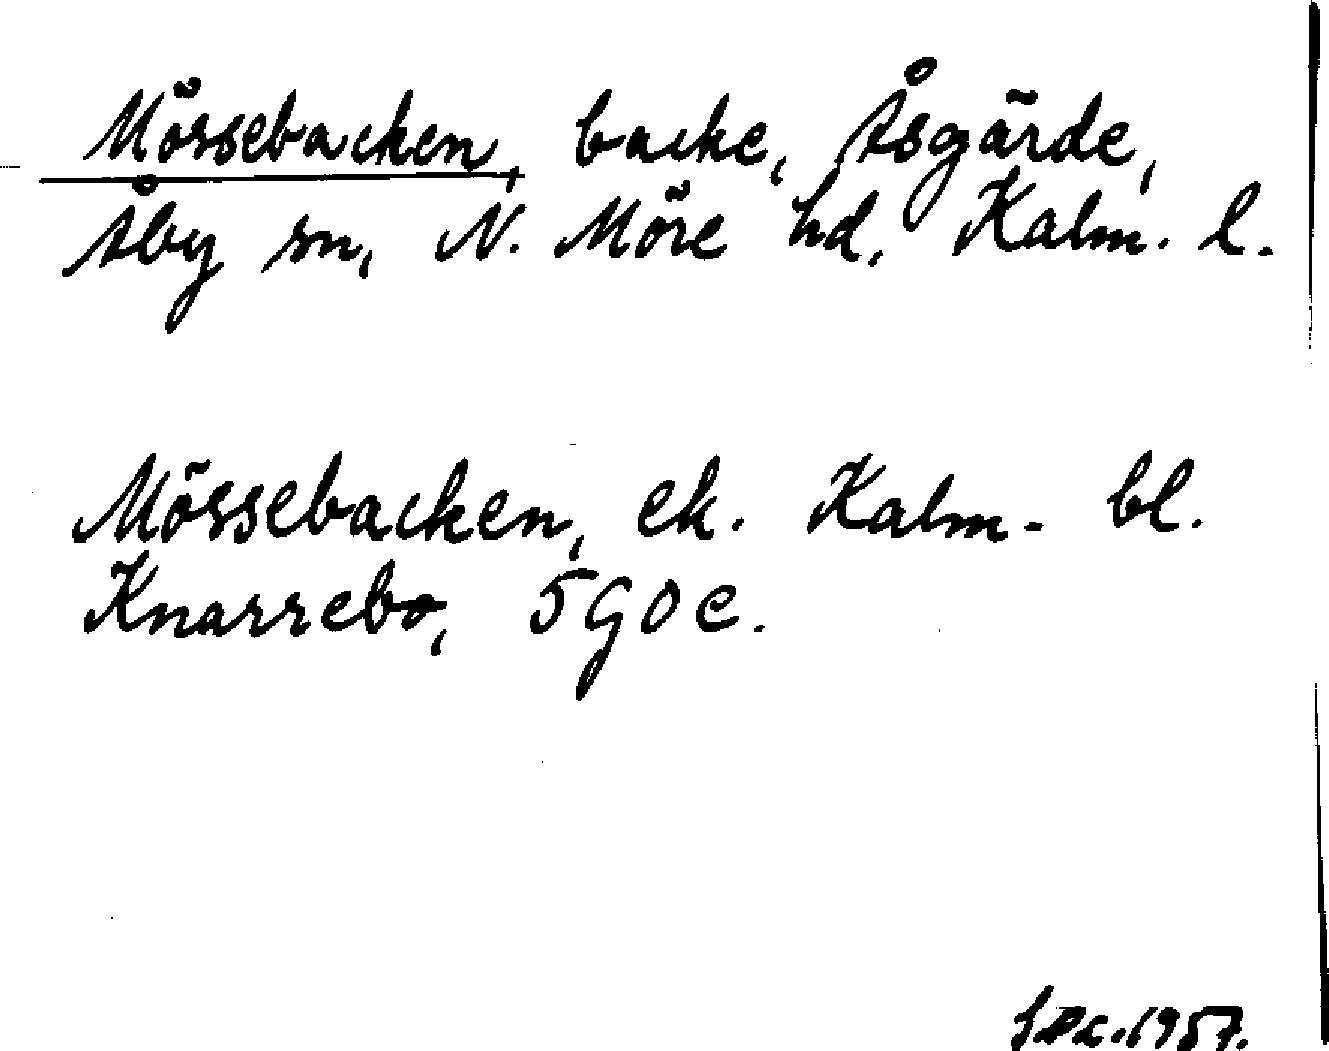 Mössebacken, backe, Åsgärde,
Åby sn, N. Möre hd, Kalm. l.
Mössebacken, ek. Kalm. bl.
Knarrebo, 5G0e.
1957.